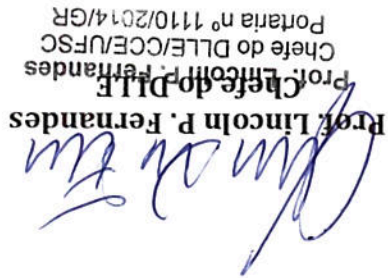 Prof. Lincoln P. Fernandes
Chefe do DLLE
Prof. Lincoln P. Fernandes
Chefe do DLLE/CCE/UFSC
Portaria nº 1110/2014/GR